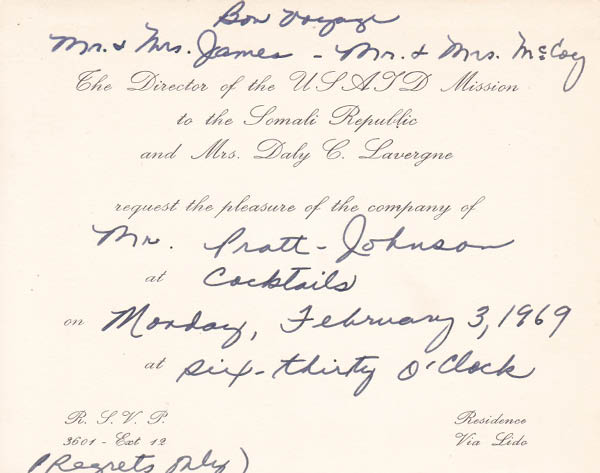 Bon Voyage
Mr. & Mrs. James - Mr. & Mrs. McCoy
The Director of the USAID Mission
to the Somali Republic
and Mrs. Daly C. Lavergne
request the pleasure of the company of
Mr. Pratt-Johnson
at Cocktails
on Monday, February 3, 1969
at six-thirty O'Clock
R. S. V. P. Residence
3601 - Ext 12 Via Lido
(Regrets only)